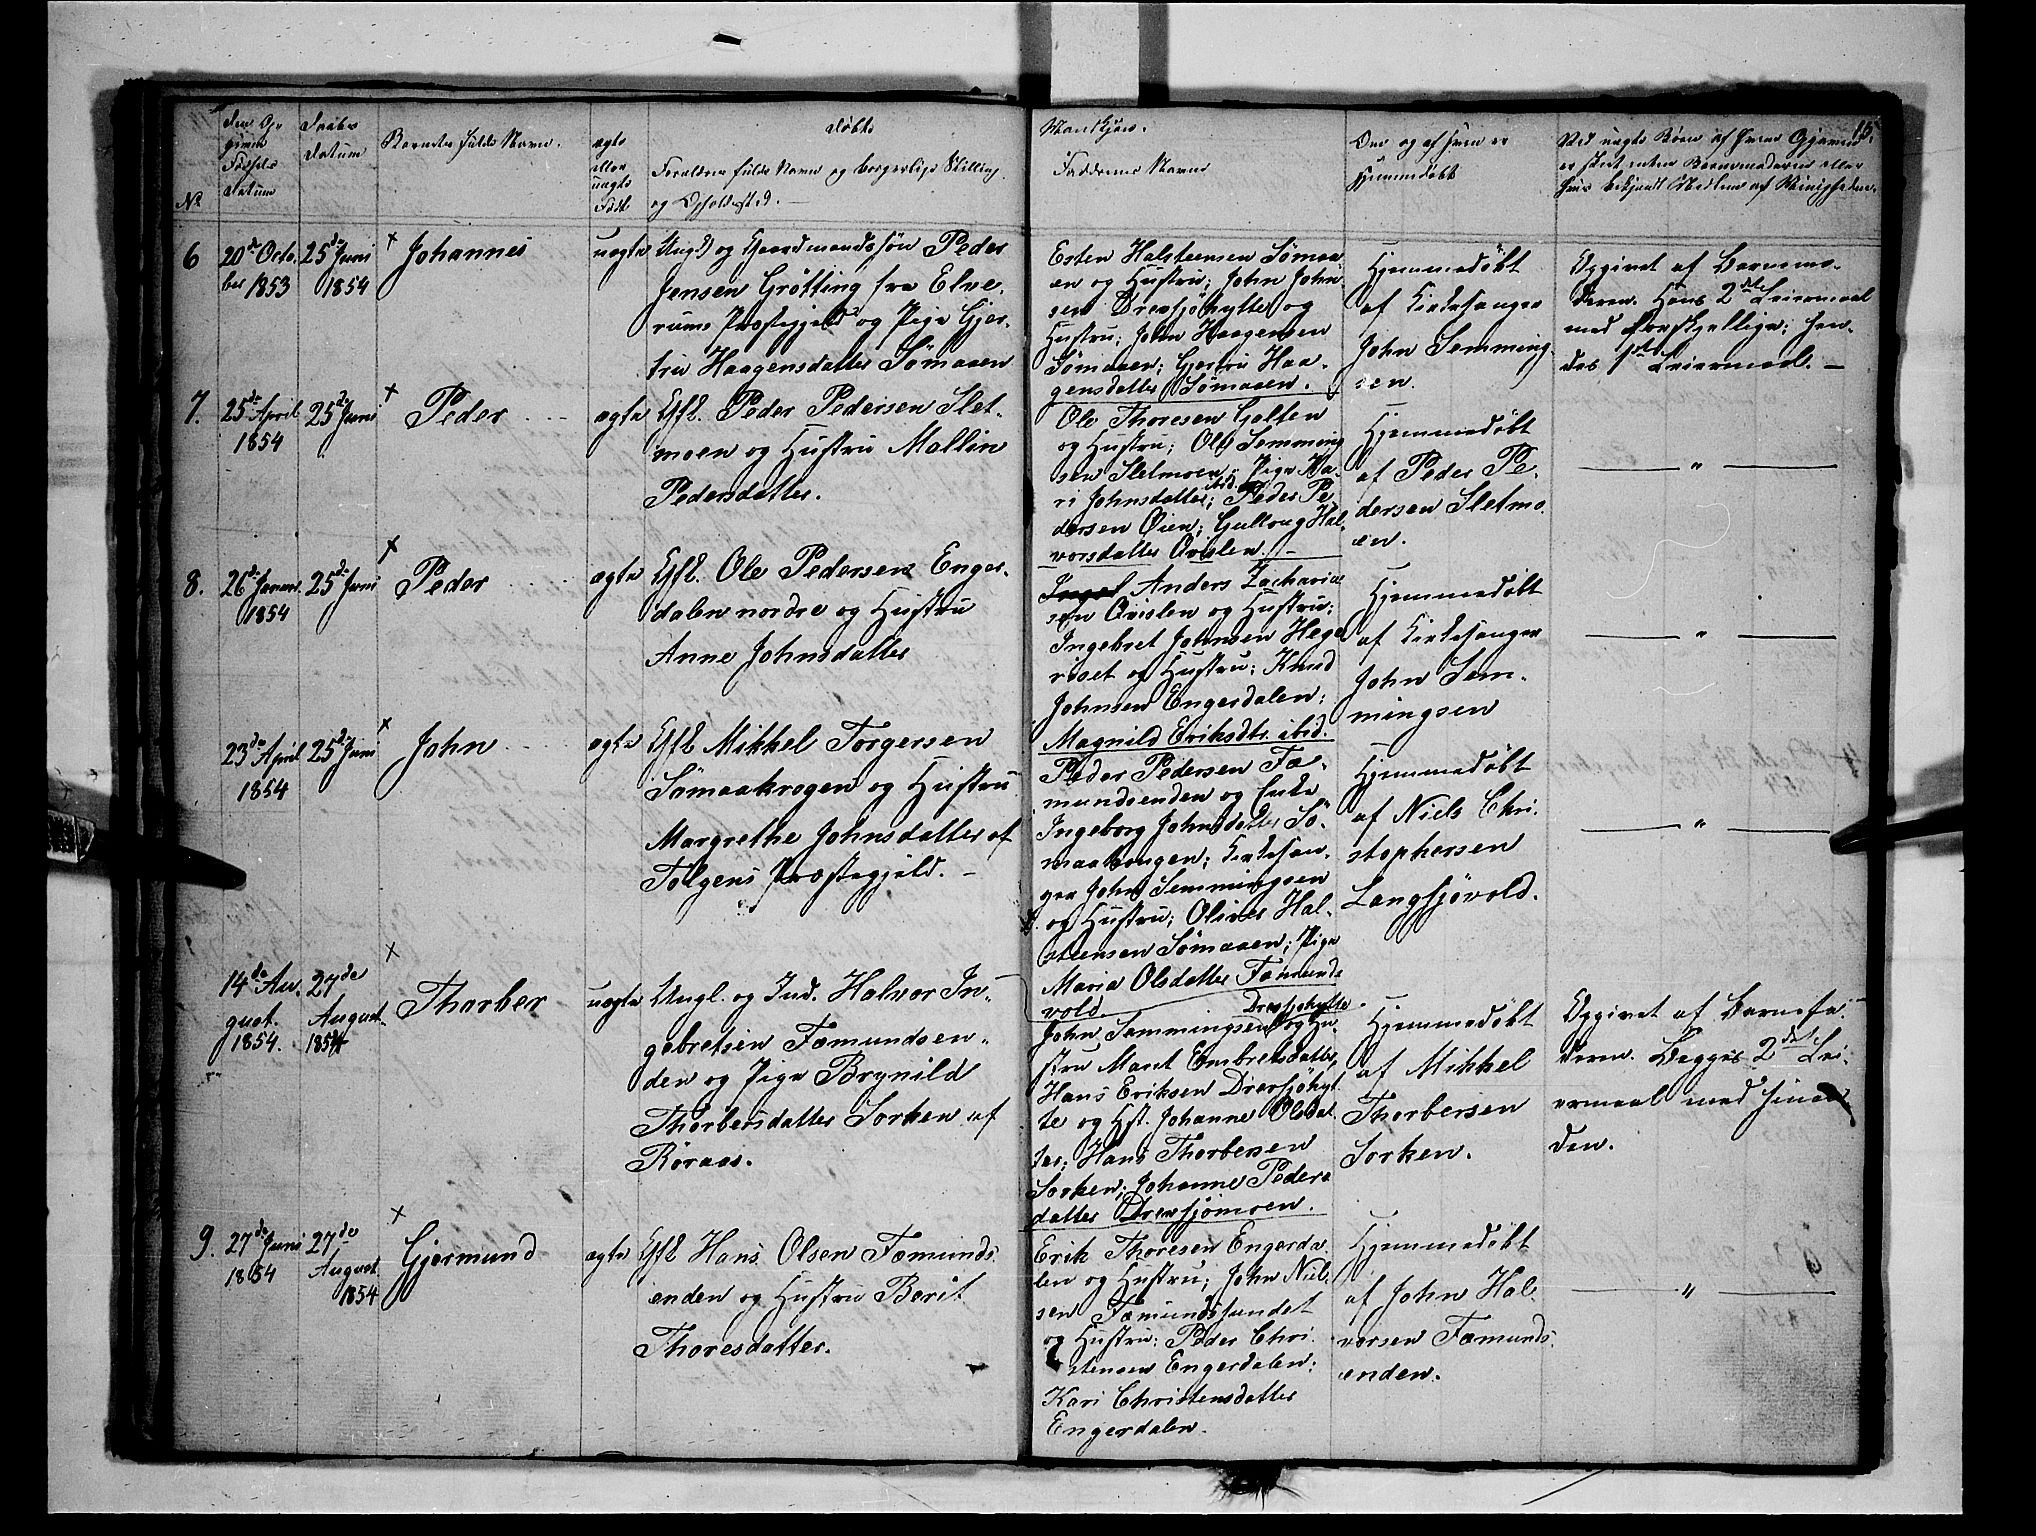 15.
Døbte
Mandkjøn.
No
Den Op-
givne
Fødsels
Datum
Daabs
Datum
Barnets fulde Navn.
ægte
eller
uægte
Født
Forældrenes fulde Navn og borgerlige Stilling
og Opholdssted. —
Faddernes Navne
Om og af hvem er
hjemmedøbt
Ved uægte Børn af hvem
er skeet enten Barnemoderen eller
6
20de Octo-
ber 1853
25de Juni
1854
Johannes
uægte
Ungk. og Gaardmandssøn Peder
Jensen Grøtting fra Elve-
rums Præstegjeld og Pige Gjer-
tru Haagensdatter Sømaaen
Esten Halsteensen Sømaa-
en og Hustru; John John-
sen Drevsjøhytte og
Hustru; John Haagensen
Sømaaen; Gjertru Haa-
gensdatter Sømaaen.
Hjemmedøbt
af Kirkesanger
John Semming-
sen.
Opgivet af Barnemo-
deren. Hans 2det Leiermaal
med forskjellige; hen-
des 1ste Leiermaal. —
7.
25de April
1854
25de Juni
Peder
ægte
Gft. Peder Pedersen Slet-
moen og Hustru Mallin
Pedersdatter.
Ole Thoresen Galten
og Hustru; Ole Semming-
sen Sletmoen; Pige Ka-
ri Johnsdatter ibid.; Peder Pe-
dersen Øien; Gullaug Hal-
vorsdatter Qvislen. —
Hjemmedøbt
af Peder Pe-
dersen Sletmo-
en.
— " —
8.
26de Januar
1854
25de Juni
Peder
ægte
Gft. Ole Pedersen Enger-
dalen nordre og Hustru
Anne Johnsdatter
Anders Zacharia-
sen Qvislen og Hustru;
Ingebret Johnsen Hege-
riset og Hustru; Knud
Johnsen Engerdalen;
Magnild Eriksdtr. ibid.
Hjemmedøbt
af Kirkesanger
John Sem-
mingsen
— " —
23de April
1854
25de Juni
John
ægte
Gft. Mikkel Torgersen
Sømaakrogen og Hustru
Margrethe Johnsdatter af
Tolgens Præstegjeld. —
Peder Pedersen Fæ-
mundsenden og Enke
Ingeborg Johnsdatter Sø-
maakrogen; Kirkesan-
ger John Semmingsen
og Hustru; Oliver Hal-
steensen Sømaaen; Pige
Maria Olsdatter Fæmunds-
vold
Hjemmedøbt
af Niels Chri-
stophersen
Langsjøvold.
— " —
14de Au-
gust.
1854.
27de
August
1854
Thorber
uægte
Ungk. og Ind. Halvor In-
gebretsen Fæmundsen-
den og Pige Brynild
Thorbersdatter Sorken af
Röraas.
Drevsjøhytte
John Semmingsen og Hu-
stru Maret Embretsdatter,
Hans Eriksen Drevsjøhyt-
te og Hst. Johanne Olsdat-
ter; Hans Thorbersen
Sorken; Johanne Peders-
datter Drevsjømoen.
Hjemmedøbt
af Mikkel
Thorbersen
Sorken.
Opgivet af Barnefa-
deren. Begges 2det Lei-
ermaal med hinan-
den.
9.
27de Juni
1854
27de
August
1854
Gjermund
ægte
Gft. Hans Olsen Fæmunds-
enden og Hustru Borit
Thoresdatter.
Erik Thoresen Engerda-
len og Hustru; John Niel-
sen Fæmundssundet
og Hustru; Peder Chri-
stensen Engerdalen;
Kari Christensdatter
Engerdalen.
Hjemmedøbt
af John Hal-
vorsen Fæmunds-
enden.
— " —